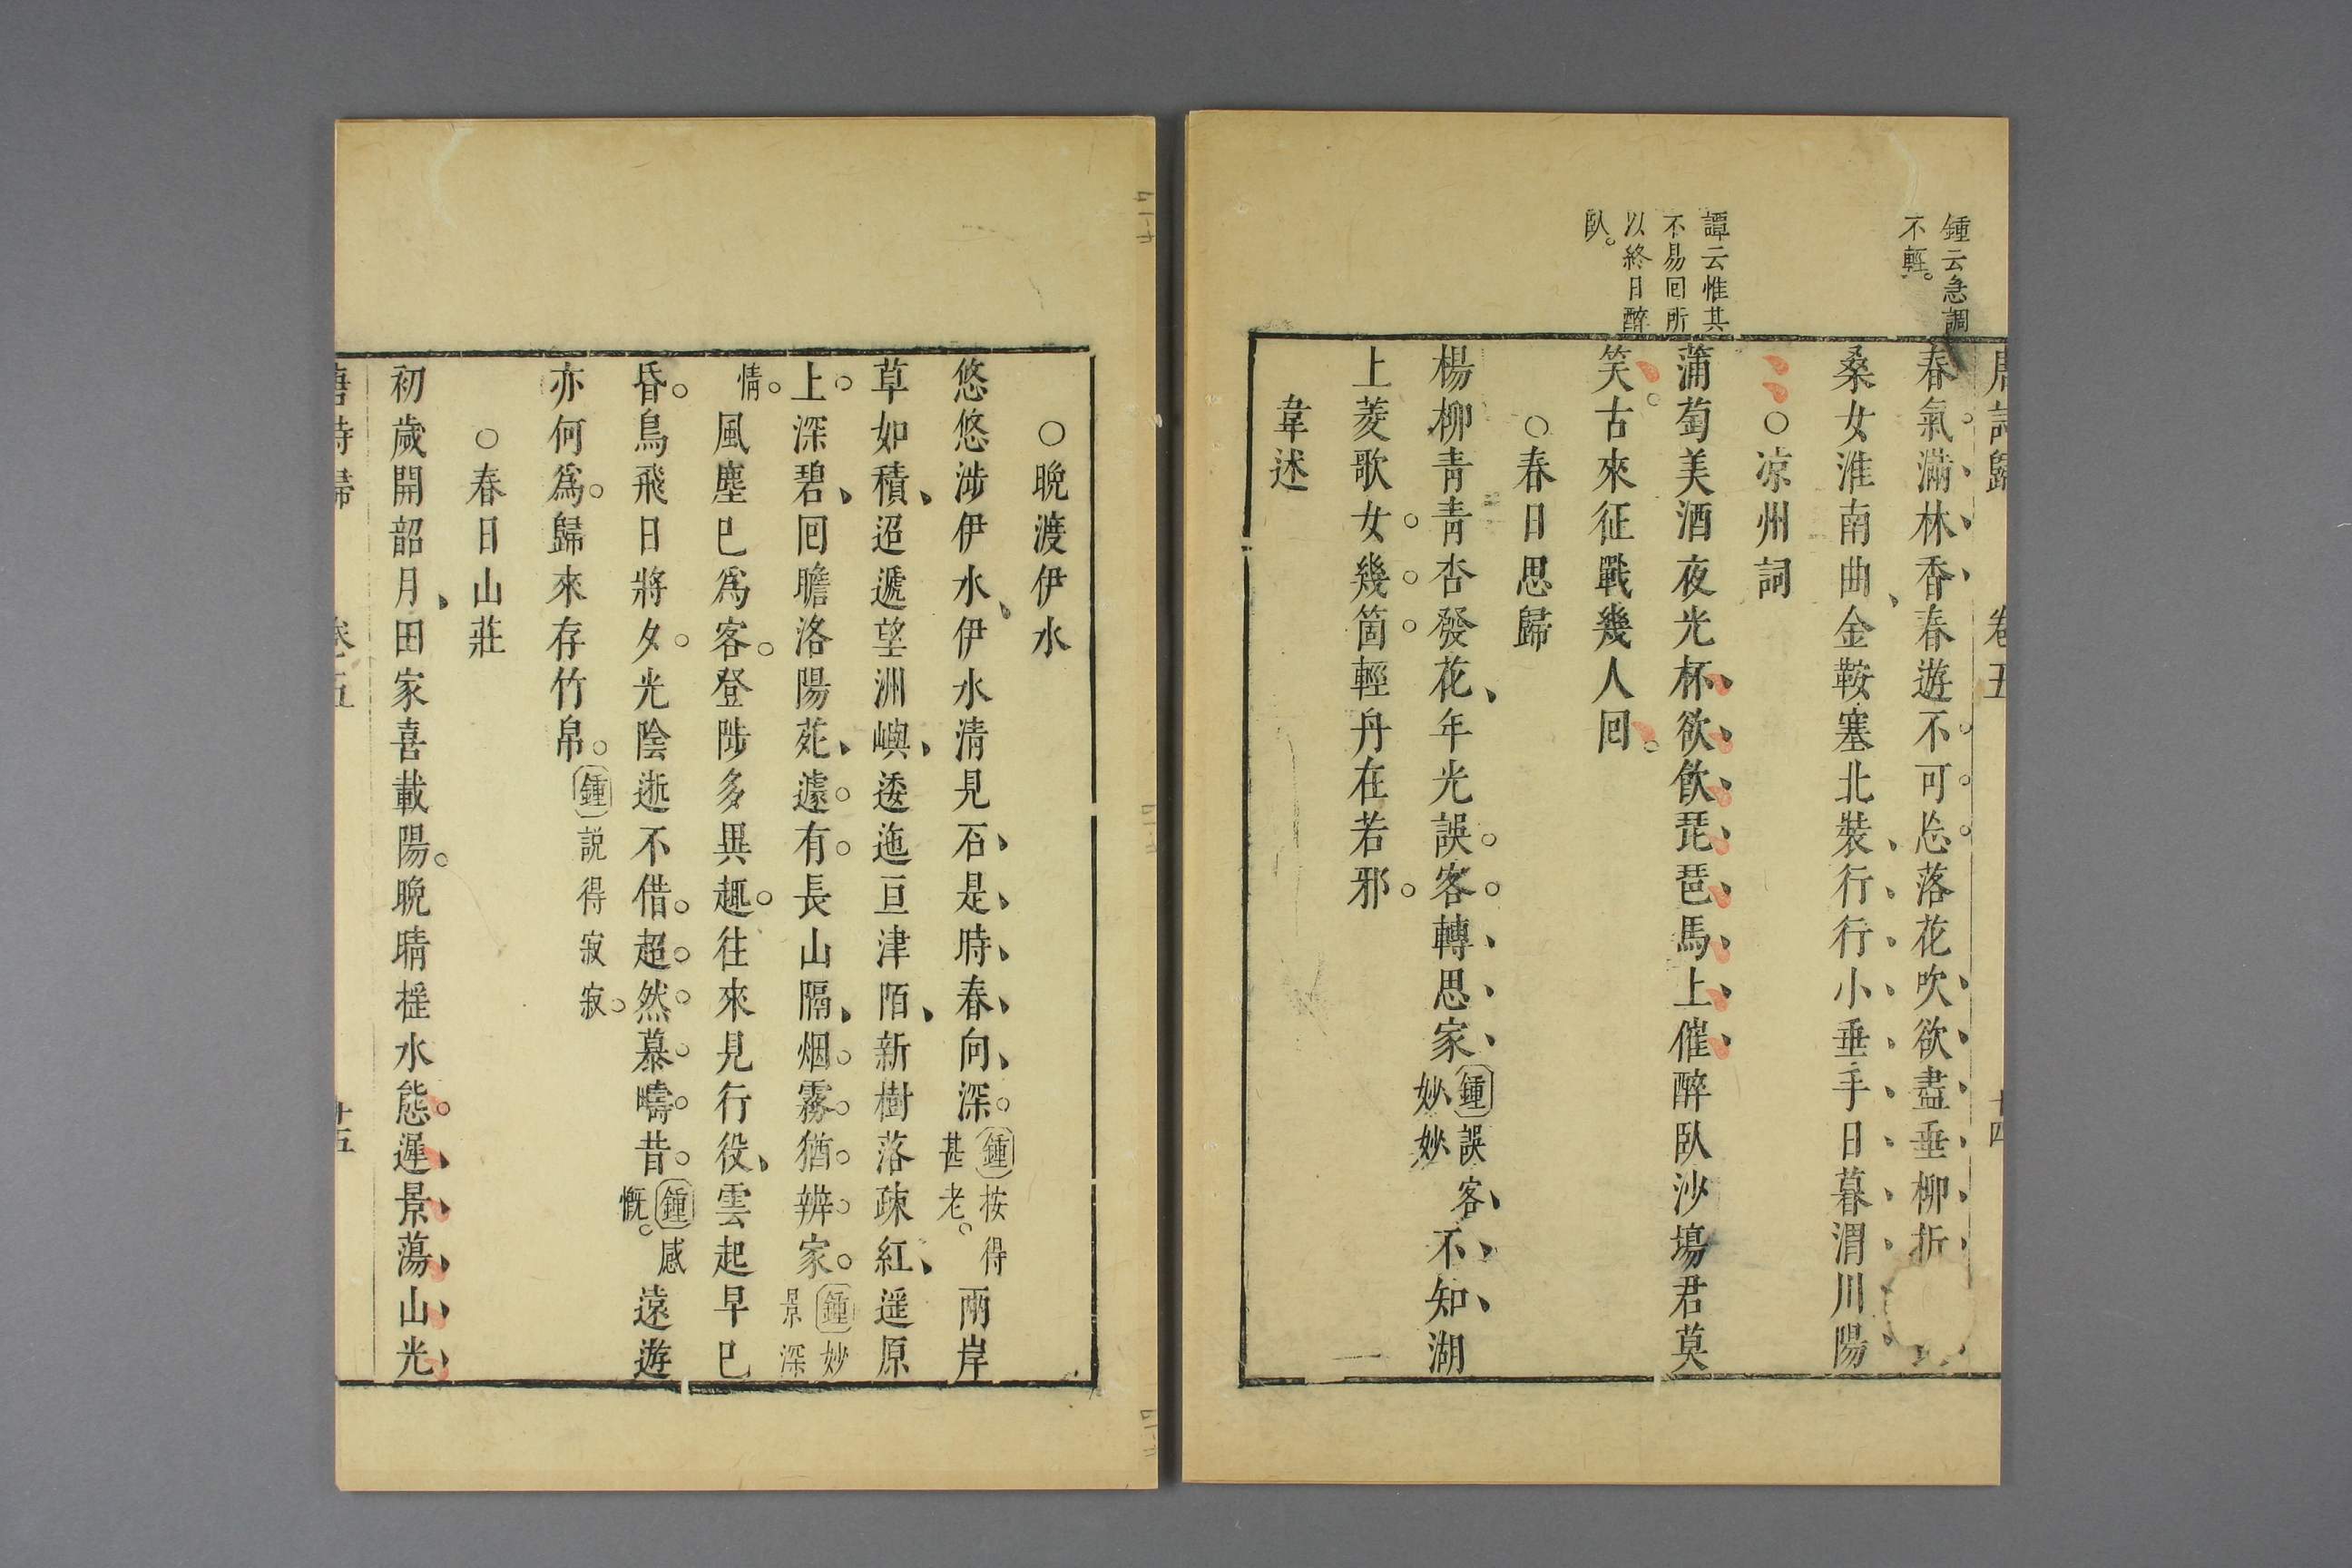 唐詩歸 卷五 十四
鍾云急調
不輕。
春氣滿林香春遊不可忘落花吹欲盡垂柳折
桑女淮南曲金鞍塞北裝行行小垂手日暮渭川陽
○凉州詞
譚云惟其
不易囘所
以終日醉
臥。
蒲萄美酒夜光杯欲飲琵琶馬上催醉臥沙塲君莫
笑古來征戰幾人囘
○春日思歸
楊柳青青杏發花年光誤客轉思家鍾誤客妙妙不知湖
上菱歌女幾箇輕丹在若邪
韋述
○晚渡伊水
悠悠涉伊水伊水清見石是時春向深鍾按得甚老。兩岸
草如積迢遞望洲嶼逶迤亘津陌新樹落疎紅遥原
上深碧囘瞻洛陽苑遽有長山隔烟霧猶辨家鍾妙景深
情。風塵巳爲客登陟多異趣往來見行役雲起早巳
昏鳥飛日將夕光陰逝不借超然慕疇昔鍾感慨。遠遊
亦何爲歸來存竹帛鍾説得寂寂。
○春日山莊
初歲開韶月田家喜載陽晚晴摇水態遲景蕩山光
唐詩歸 卷五 十五